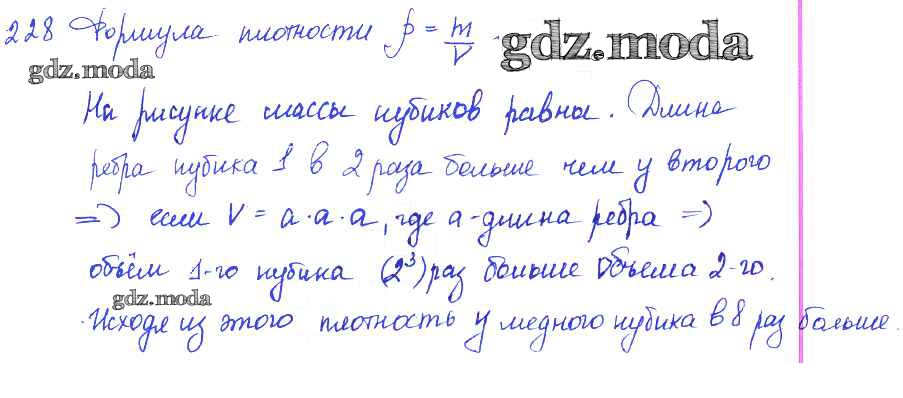 228 Формула плотности ρ = m/V.
gdz.moda
gdz.moda
На рисунке массы кубиков равны. Длина
ребра кубика 1 в 2 раза больше чем у второго
=> если V = a·a·a, где a - длина ребра =>
объём 1-го кубика (2³) раз больше объема 2-го.
gdz.moda
Исходя из этого плотность у медного кубика в 8 раз больше.